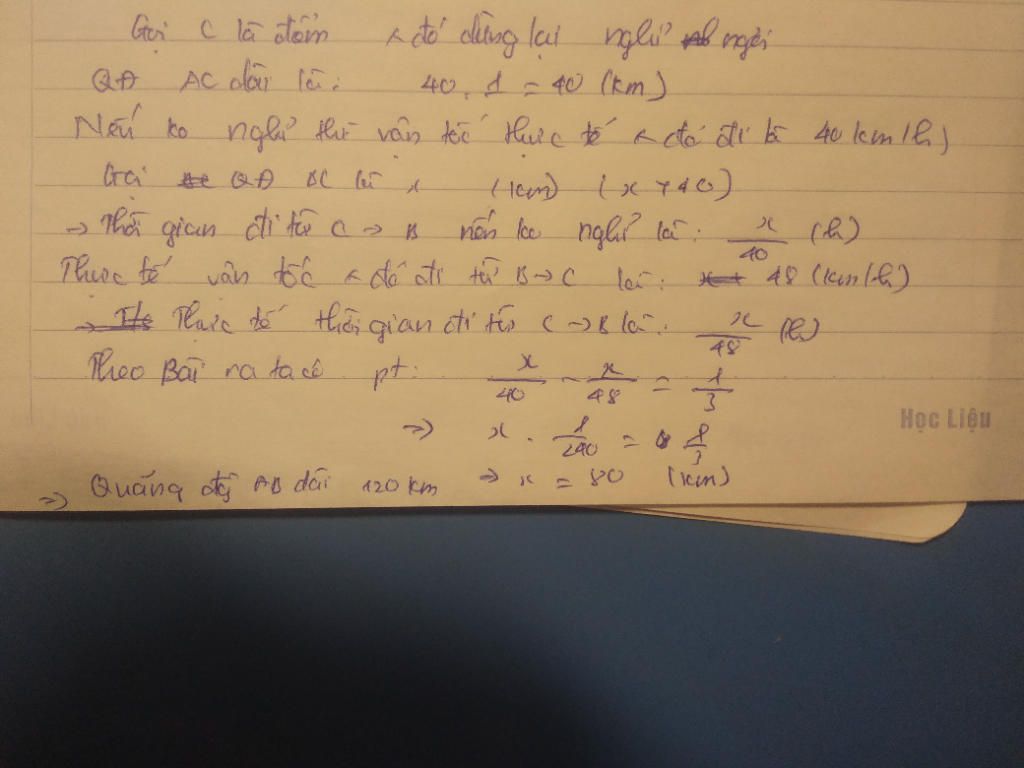 Gọi C là điểm ô đó dừng lại nghỉ ngơi
QĐ AC dài là: 40 . 1 = 40 (km)
Nếu ko nghỉ thì vận tốc thực tế ô đó đi là 40 km/h)
Gọi QĐ BC là x (km) (x > 40)
-> Thời gian đi từ C -> B nếu ko nghỉ là: x/40 (h)
Thực tế vận tốc ô đó đi từ B -> C là: 48 (km/h)
Thực tế thời gian đi từ C -> B là: x/48 (h)
Theo Bài ra ta có pt: x/40 - x/48 = 1/3
=> x . 1/240 = 1/3
=> Quãng đg AB dài 120 km => x = 80 (km)
Học Liệu